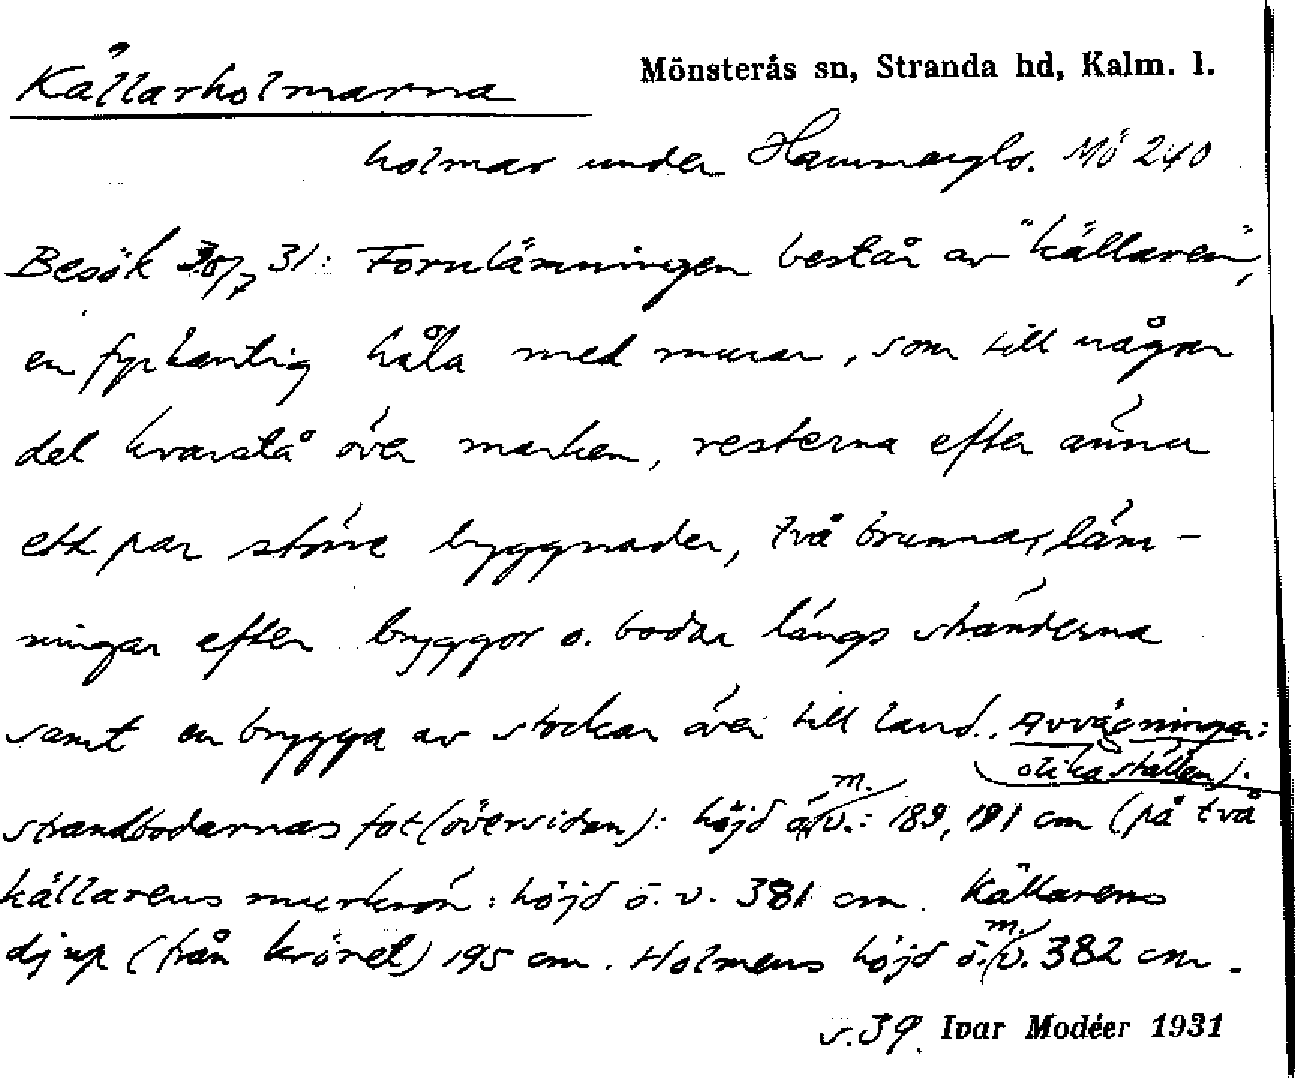 Källarholmarna
Mönsterås sn, Stranda hd, Kalm. l.
holmar under Hammarglo. Mö 240
Besök 30/7 31: Fornlämningen består av "källaren",
en fyrkantig håla med murar, som till någon
del kvarstå över marken, resterna efter ännu
ett par större byggnader, två brunnar, läm-
ningar efter bryggor o. bodar längs stränderna
samt en brygga av stockar över till land. Avvägningar:
strandbodarnas fot (översidan): höjd ö.m.v.: 189, 191 cm (på två
olika ställen).
källarens murkrön: höjd ö.v. 381 cm. Källarens
djup (från krönet) 195 cm. Holmens höjd ö.m.v. 382 cm.
s.39. Ivar Modéer 1931